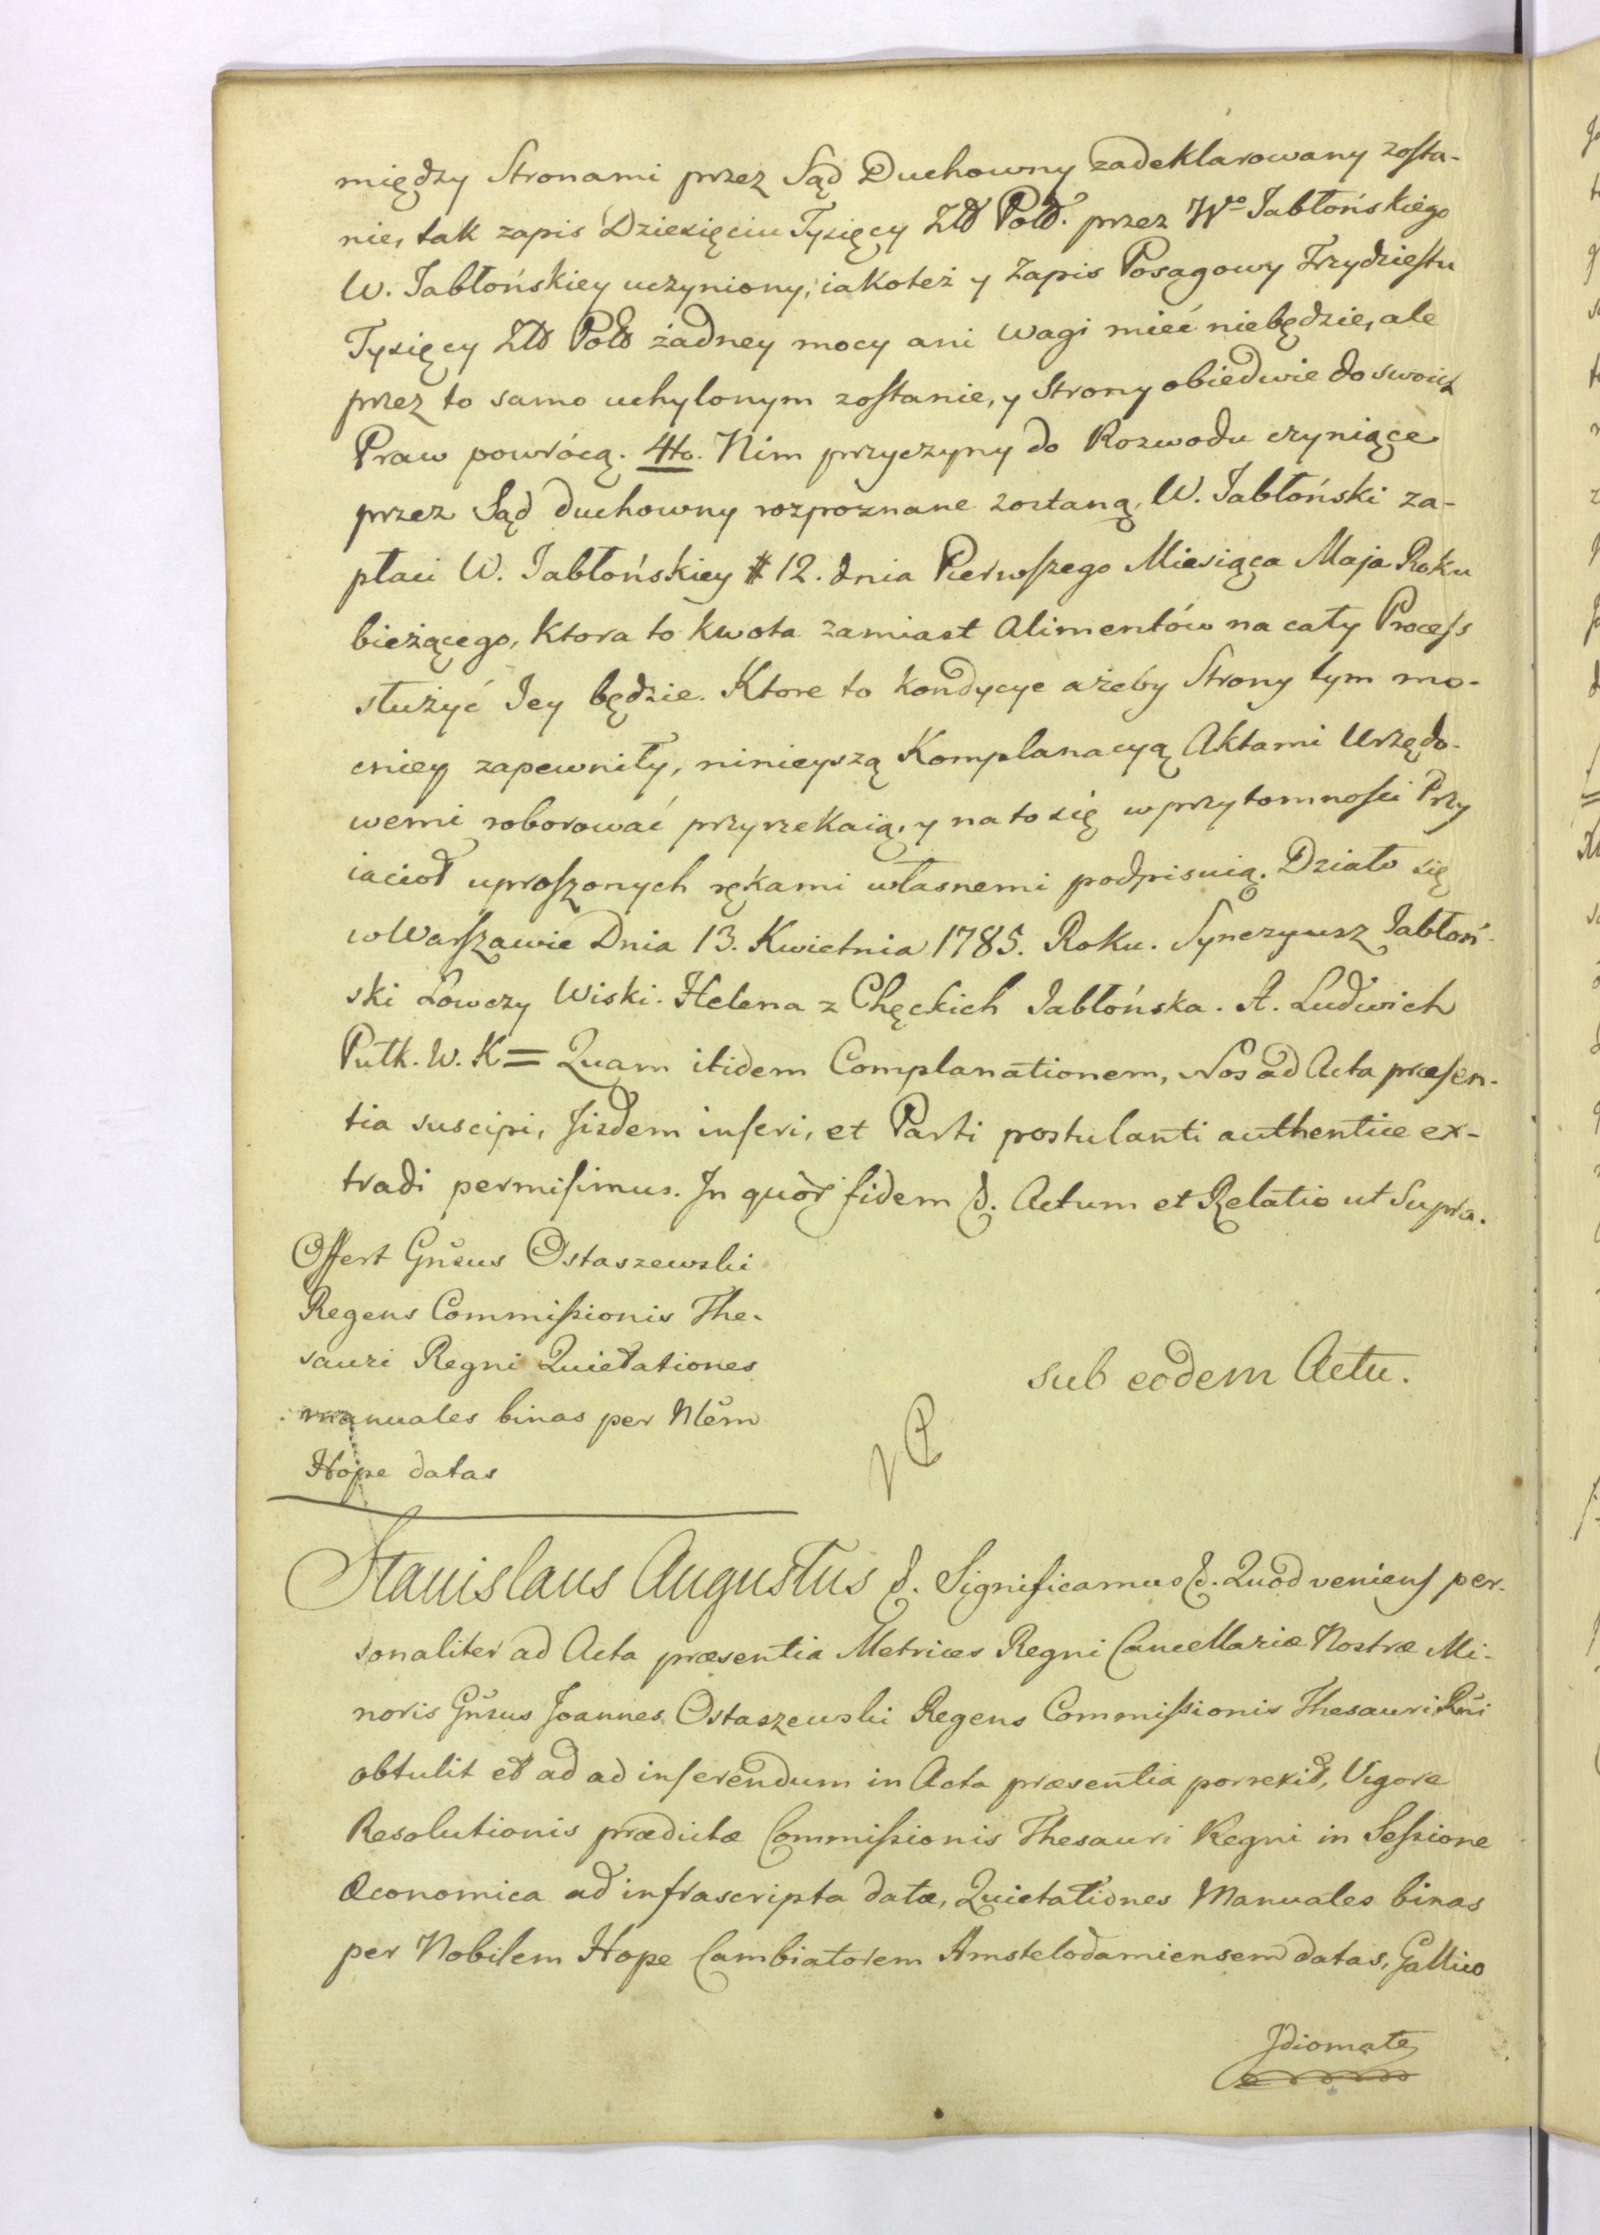 między Stronami przez Sąd Duchowny zadeklarowany zosta-
nie, tak zapis Dziesięciu Tysięcy Złł Poll. przez Wo Jabłońskiego
W. Jabłońskiey uczyniony, iakoteż y Zapis Posagowy Trzydziestu
Tysięcy Złł Poll żadney mocy ani wagi mieć niebędzie, ale
przez to samo uchylonym zostanie, y Strony obiedwie do swoich
Praw powrócą. 4to. Nim przyczyny do Rozwodu czyniące
przez Sąd duchowny rozpoznane zostaną, W. Jabłoński za-
płaci W. Jabłońskiey # 12. dnia Pierwszego Miesiąca Maja Roku
bieżącego, ktora to kwota zamiast Alimentów na cały Process
służyć Jey będzie. Ktore to kondycye ażeby Strony tym mo-
cniey zapewniły, ninieyszą Komplanacyą Aktami Urzędo-
wemi roborować przyrzekaią, y na to się w przytomności Przy
iacioł uproszonych rękami własnemi podpisuią. Działo się
w Warszawie Dnia 13. Kwietnia 1785. Roku. Synezyusz Jabłoń-
ski Łowczy Wiski. Helena z Chęckich Jabłońska. A. Ludwich
Pułk. W. K = Quam itidem Complanationem, Nos ad Acta præsen-
tia suscipi, Jisdem inseri, et Parti postulanti authentice ex-
tradi permisimus. In quor fidem &. Actum et Relatio ut Supra.
Offert Gnsus Ostaszewski
Regens Commissionis The-
sauri Regni Quietationes
manuales binas per Nlem
Hope datas
sub eodem Actu.
Stanislaus Augustus &. Significamus &. Quod veniens per-
sonaliter ad Acta præsentia Metrices Regni Cancellariæ Nostræ Mi-
noris Gnsus Joannes Ostaszewski Regens Commissionis Thesauri Rni
obtulit et ad ad inserendum in Acta præsentia porrexit, Vigore
Resolutionis prædictæ Commissionis Thesauri Regni in Sessione
Œconomica ad infrascripta datæ, Quietationes Manuales binas
per Nobilem Hope Cambiatorem Amstelodamiensem datas, Gallico
Idiomate